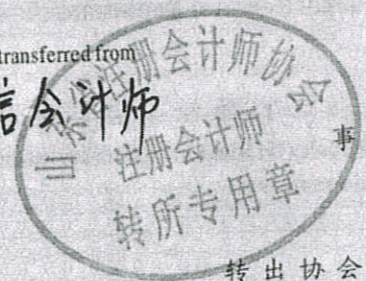 transferred from
信会计师
事
山东省注册会计师协会
注册会计师
转所专用章
转出协会